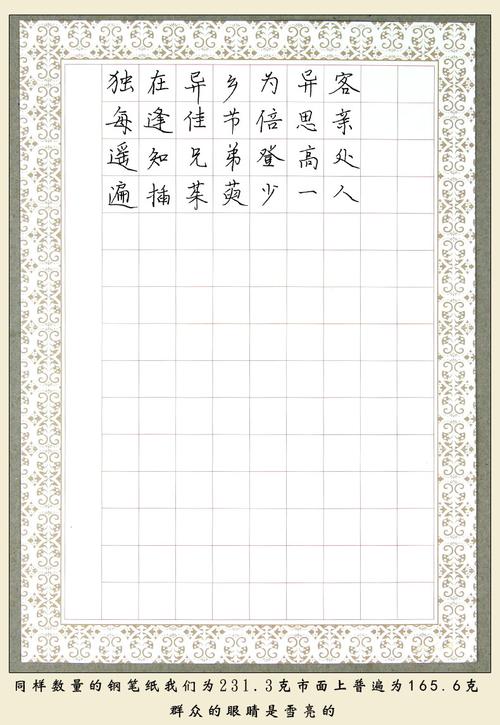 独在异乡为异客
每逢佳节倍思亲
遥知兄弟登高处
遍插茱萸少一人
同样数量的钢笔纸我们为231.3克市面上普遍为165.6克
群众的眼睛是雪亮的